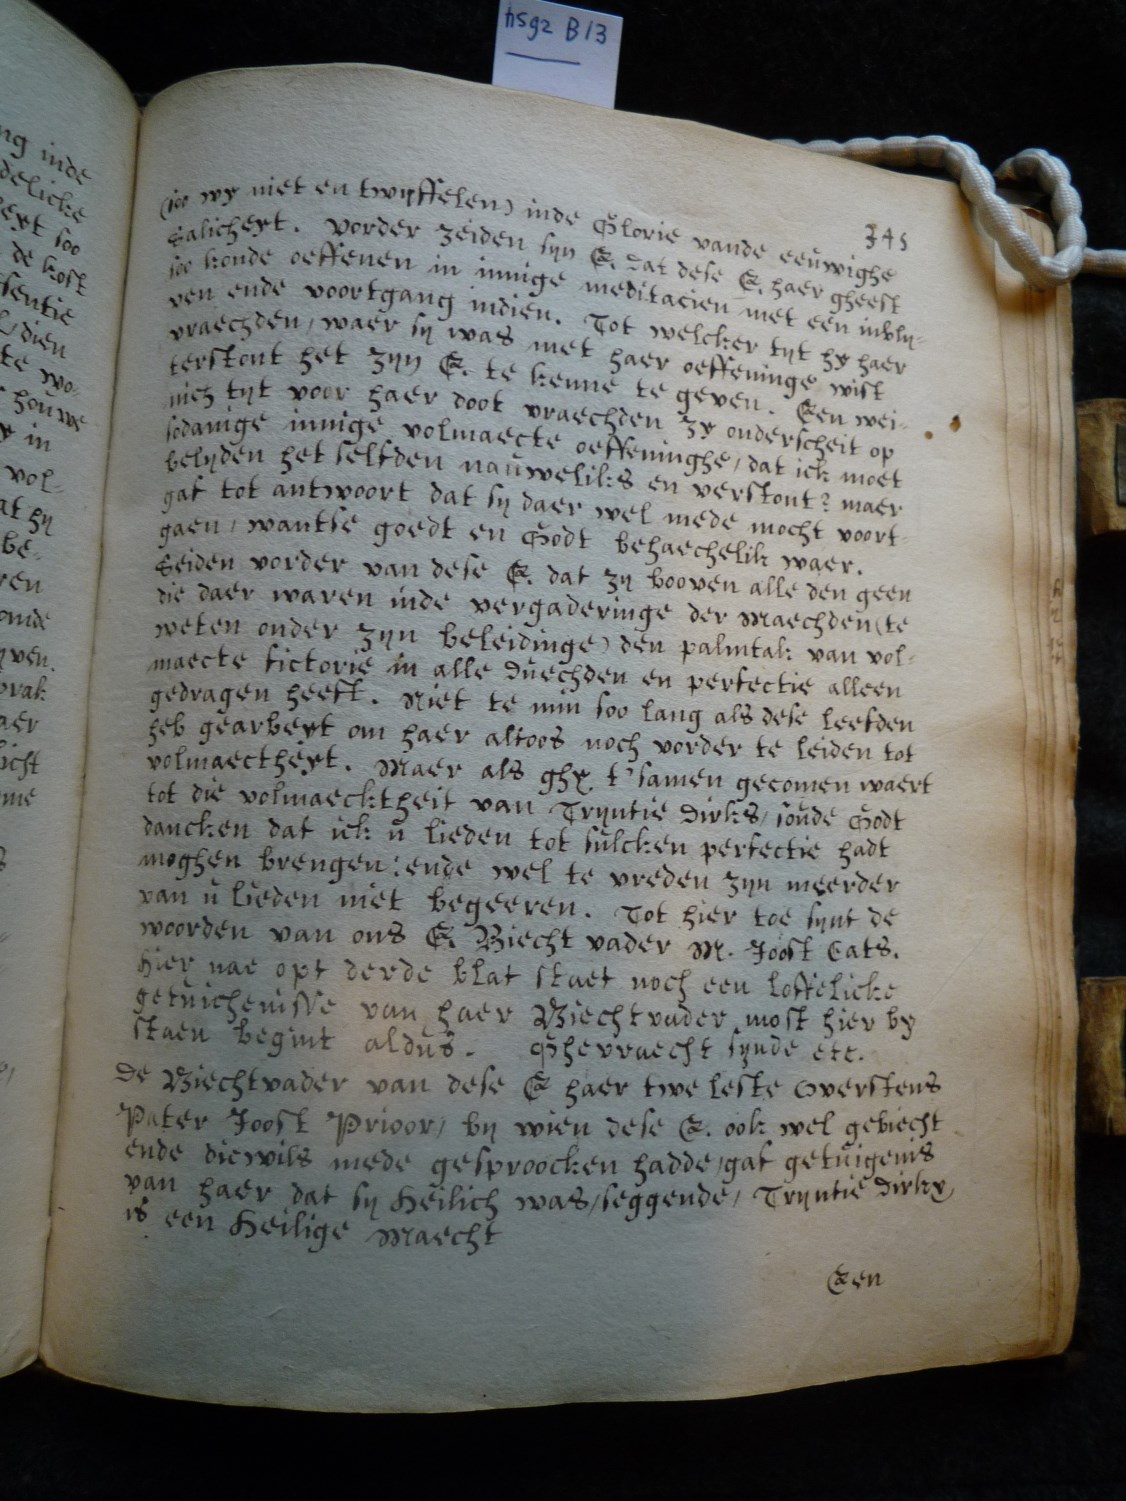 hsg2 B13
345
(soo wy niet en twijffelen) inde Glorie vande eeuwighe
Salicheyt. Vorder zeiden syn E. dat dese E. haer gheest
soo konde oeffenen in innige meditacien met een inbly-
ven ende voortgang indien. Tot welcker tyt hy haer
vraechden, waer sy was met haer oeffeninge, wist
terstont het zyn E. te kenne te geven. Een wei-
nich tyt voor haer doot vraechden zy onderscheit op
sodanige innige volmaecte oeffeninghe, dat ick moet
belyden het selfden nauweliks en verstont? maer
gaf tot antwoort dat sy daer wel mede mocht voort-
gaen, wantse goedt en Godt behaechelik waer.
Seiden vorder van dese E. dat zy booven alle den geen
die daer waren inde vergaderinge der Maechden (te
weten onder zyn beleidinge) den palmtak van vol-
maecte fictorie in alle duechden en perfectie alleen
gedragen heeft. Niet te min soo lang als dese leefden
heb gearbeyt om haer altoos noch vorder te leiden tot
volmaectheyt. Maer als ghy t'samen gecomen waert
tot die volmaecktheit van Tryntie Dirks, soude Godt
dancken dat ick u lieden tot sulcken perfectie hadt
moghen brengen: ende wel te vreden zyn meerder
van u lieden niet begeeren. Tot hier toe synt de
woorden van ons E. Biecht vader M. Joost Cats.
Hier nae opt derde blat staet noch een loffelicke
getuichenisse van haer Biechtvader most hier by
staen begint aldus. Ghevraecht synde etc.
De Biechtvader van dese E haer twe leste Overstens
Pater Joost Prioor, by wien dese E. ook wel gebiecht
ende diewils mede gesproocken hadde, gaf getuigenis
van haer dat sy Heilich was, seggende, Tryntie Dirks
is een Heilige Maecht
Een